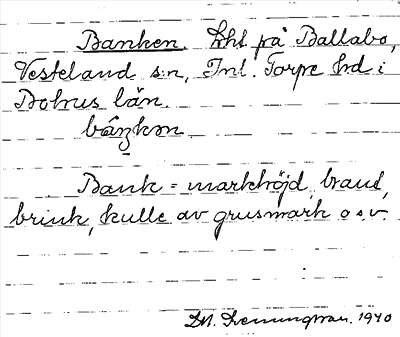 Banken. Lht på Ballabo,
Vesteland s:n, Inl. Torpe hd i
Bohus län.
bâŋkən
Bank = markhöjd, brant,
brink, kulle av grusmark o s v.
1940